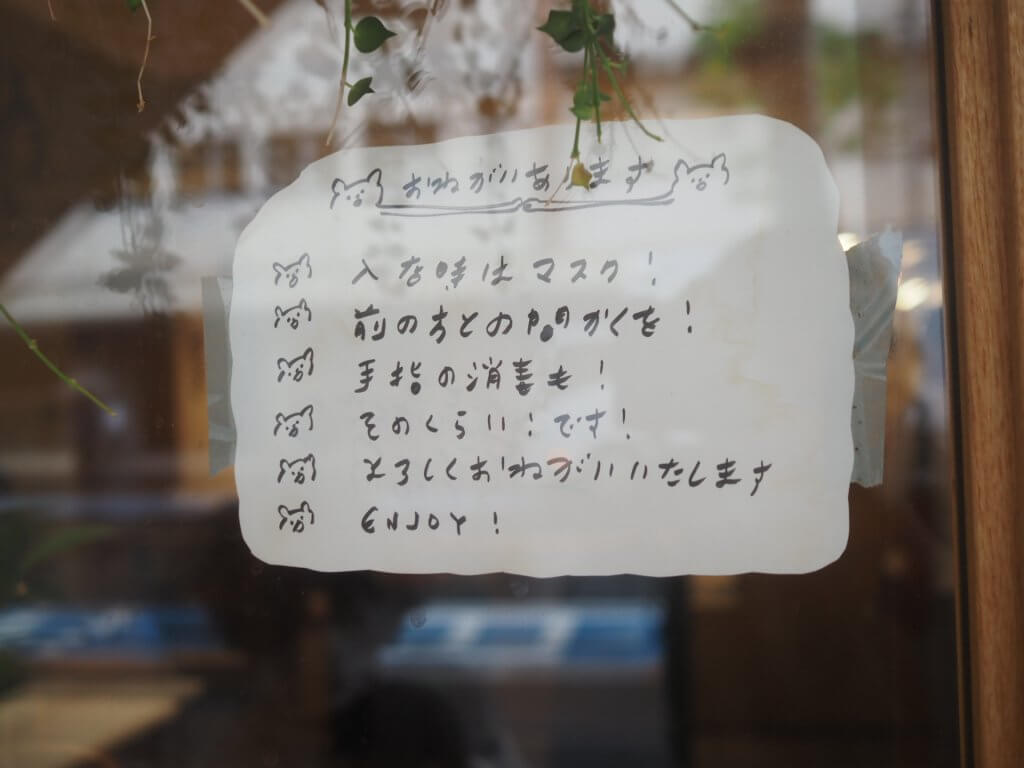 おねがいあります
入店時はマスク！
前の方との間かくを！
手指の消毒も！
そのくらい！です！
よろしくおねがいいたします
ENJOY！